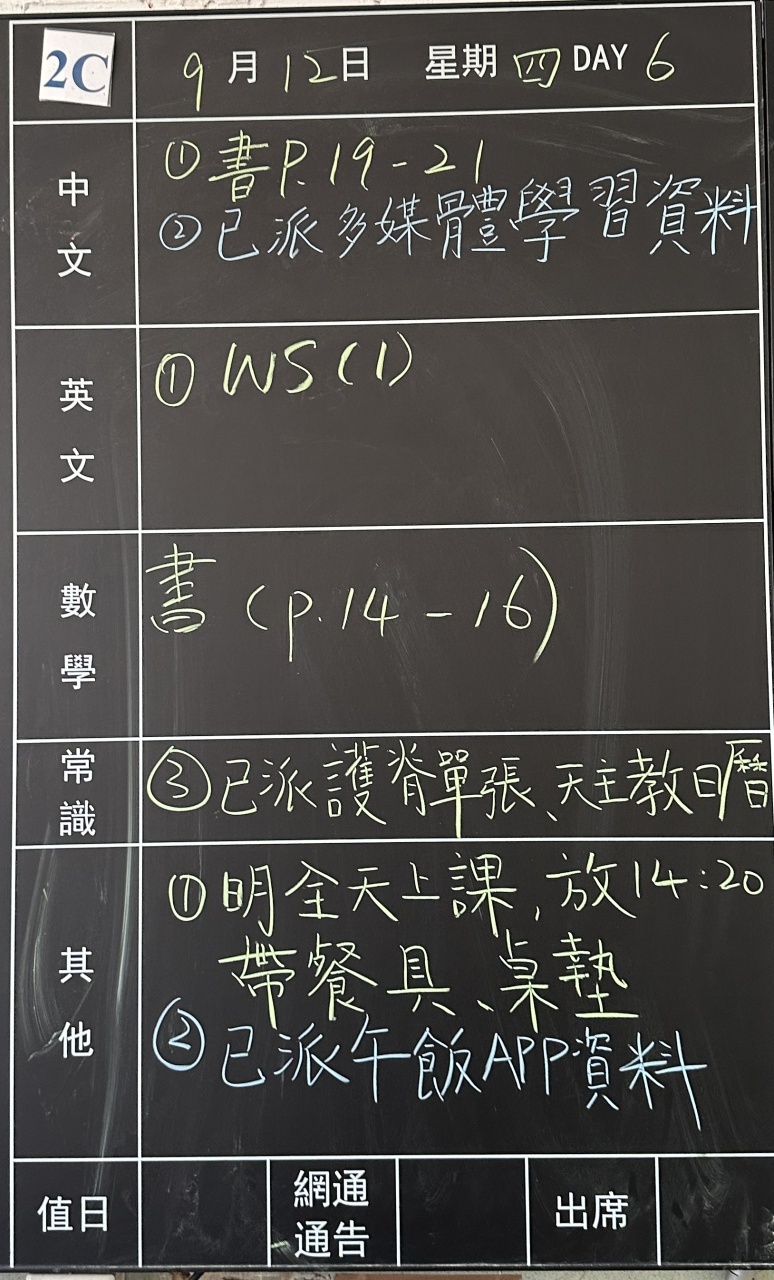 2C 9月12日 星期四 DAY 6
中文
①書P.19-21
②已派多媒體學習資料
英文
①WS(1)
數學
書(p.14-16)
常識
③已派護脊單張、天主教日曆
其他
①明全天上課,放14:20
帶餐具、桌墊
②已派午飯APP資料
值日 網通 出席
通告